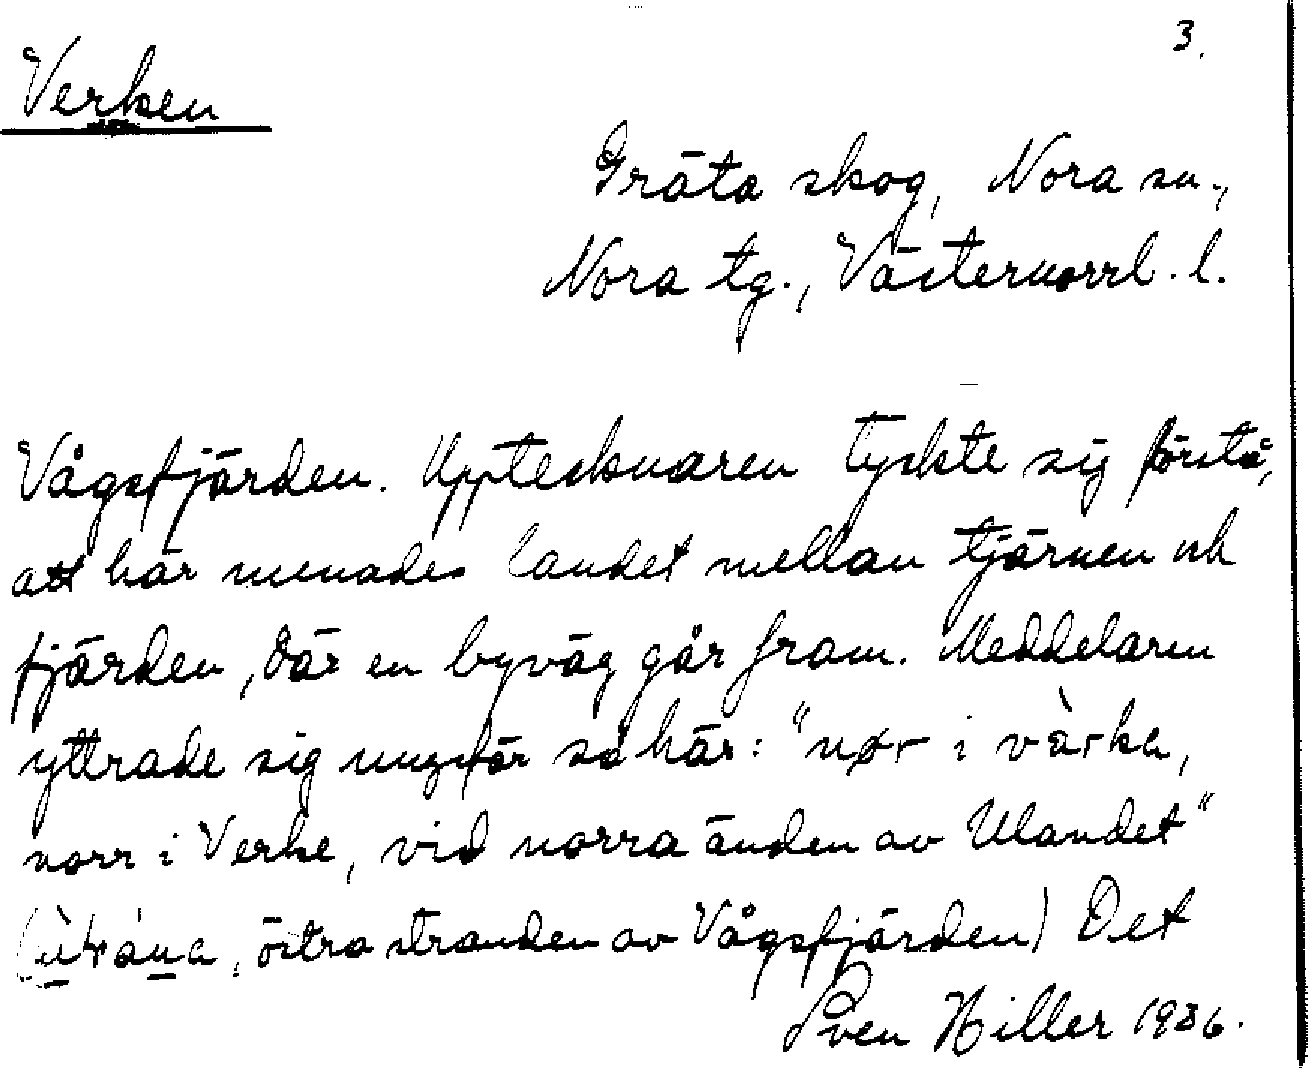 3.
Verken
Gräta skog, Nora sn.,
Nora tg., Västernorrl. l.
Vågsfjärden. Upptecknaren tyckte sig förstå,
att här menades landet mellan tjärnen och
fjärden, där en byväg går fram. Meddelaren
yttrade sig ungefär så här: "nør i vàrka,
norr i Verke, vid norra änden av Ulandet"
östra stranden av Vågsfjärden) Det
Sven Hiller 1936.